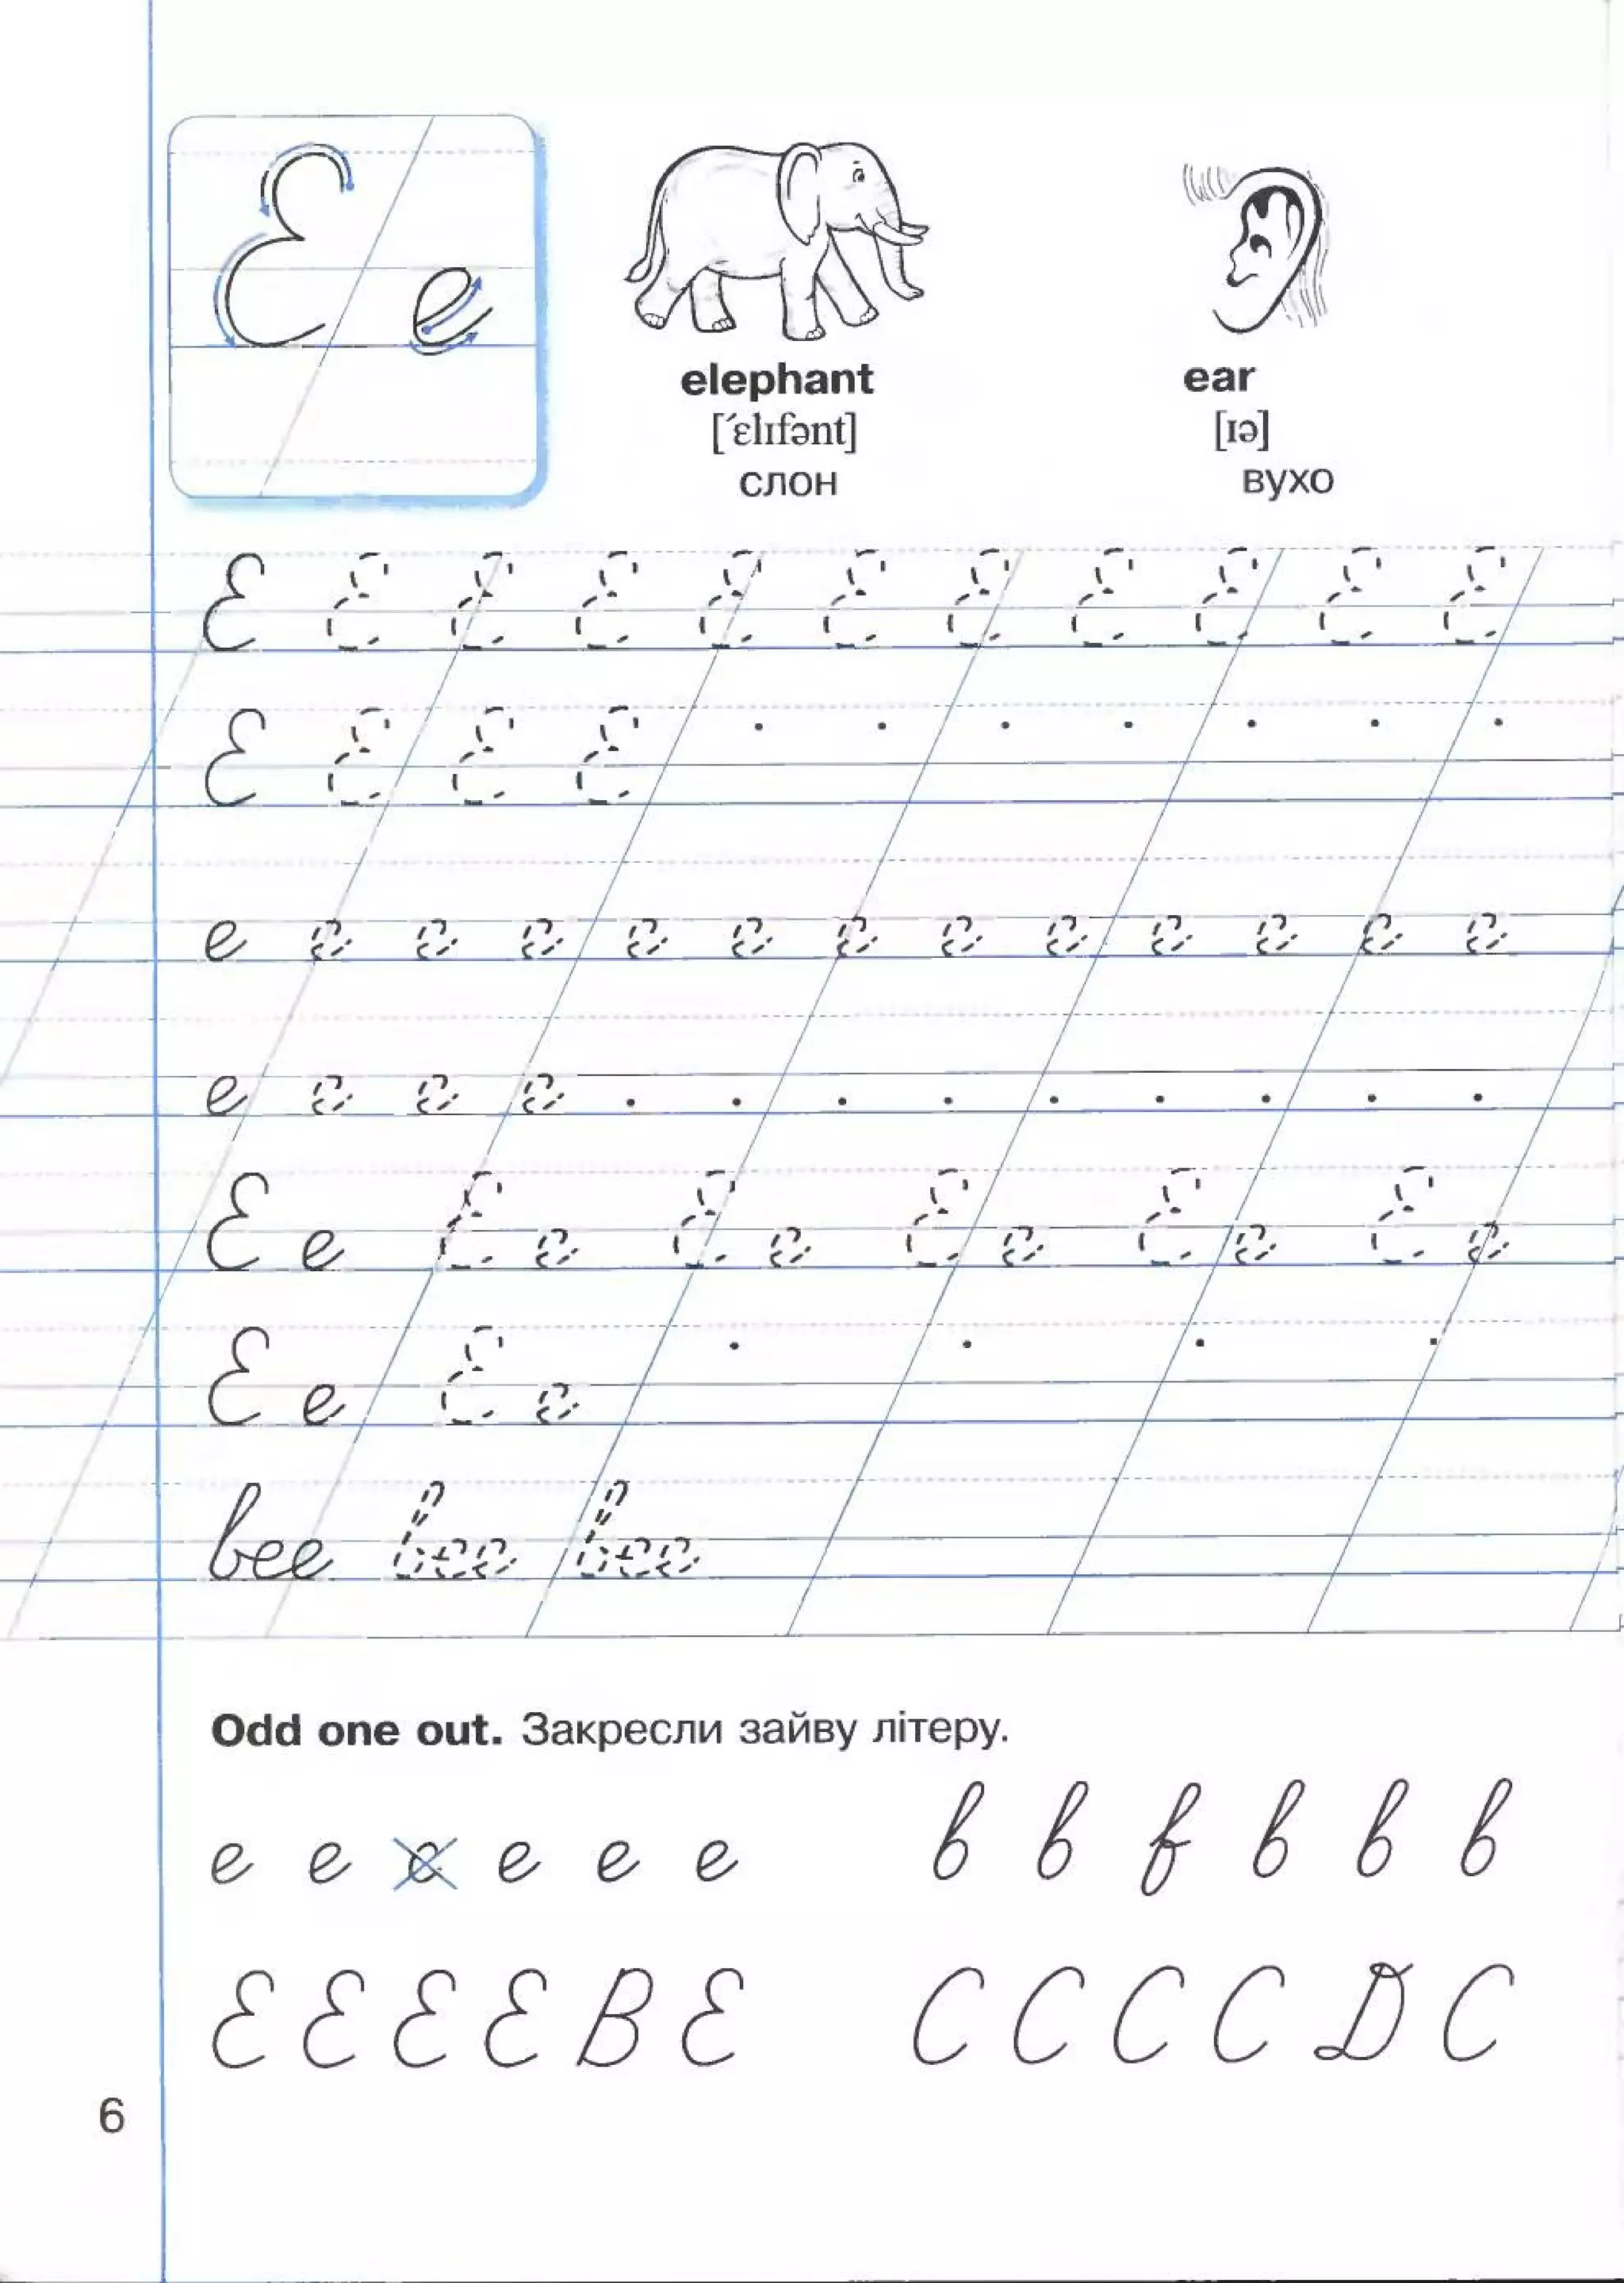 E e
elephant ear
[ˊɛlıfənt] [ɪə]
слон вухо
E E E E E E E E E E E
E E E E
e e e e e e e e e e e e e
e e e e
E e E e E e E e E e E e
E e E e
bee bee bee
Odd one out. Закресли зайву літеру.
e e c e e e b b f b b b
E E E E B E C C C C D C
6